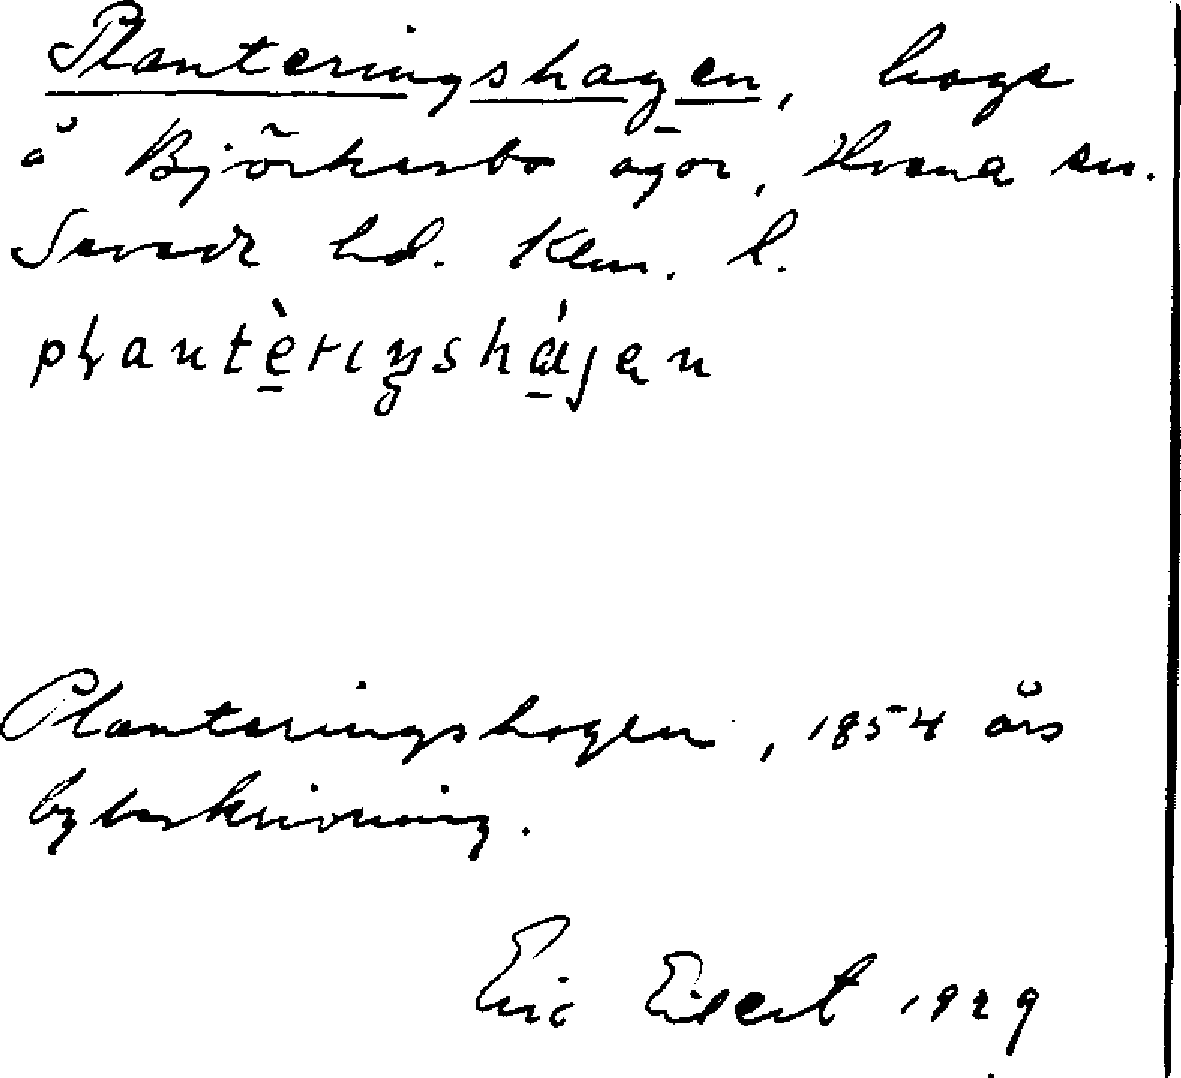 Planteringshagen, hage
å Björkesbo ägor, Hvena sn.
Sevede hd. Klm. l.
plantèriŋshágen
Planteringshagen, 1854 års
bybeskrivning.
Eric Elgert 1929